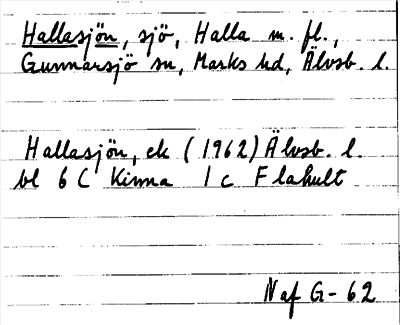 Hallasjön, sjö, Halla m. fl.,
Gunnarsjö sn, Marks hd, Älvsb. l.
Hallasjön, ek (1962) Älvsb. l.
bl 6 C Kinna 1 c Flahult
Naf G-62